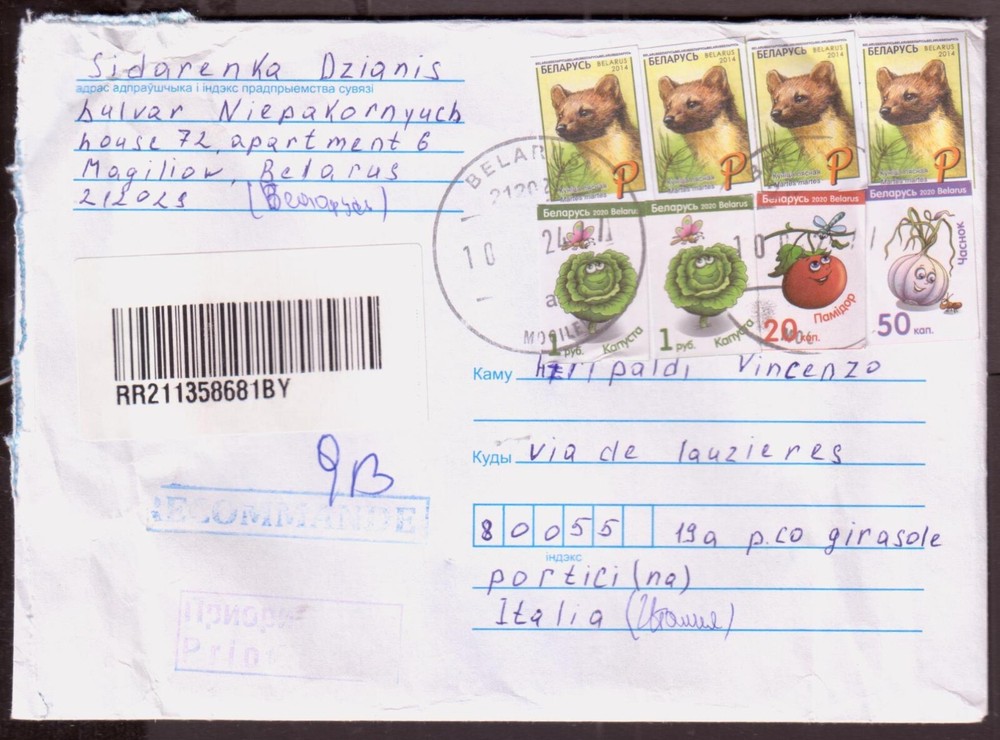 Sidarenka Dzianis
адрас адпраўшчыка і індэкс прадпрыемства сувязі
bulvar Niepakornyuch
house 72, apartment 6
Magiliow, Belarus
212029 (Беларусь)
БЕЛАРУСЬ BELARUS 2014
БЕЛАРУСЬ BELARUS 2014
БЕЛАРУСЬ BELARUS 2014
БЕЛАРУСЬ BELARUS 2014
P P P P
Беларусь 2020 Belarus
Беларусь 2020 Belarus
Беларусь 2020 Belarus
Беларусь 2020 Belarus
1 руб. Капуста
1 руб. Капуста
20 кап. Памідор
50 кап. Часнок
BELARUS
10 24
a
MOGILE
RR211358681BY
Каму Vincenzo
Куды via de lauzieres
80055 19a p.co girasole
індэкс
portici (na)
Italia (Италия)
RECOMMANDE
Приори
Prio